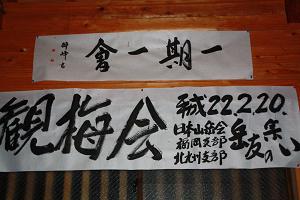 一期一會
観梅会
平成22.2.20.
日本山岳会
福岡支部
北九州支部
岳友の集い